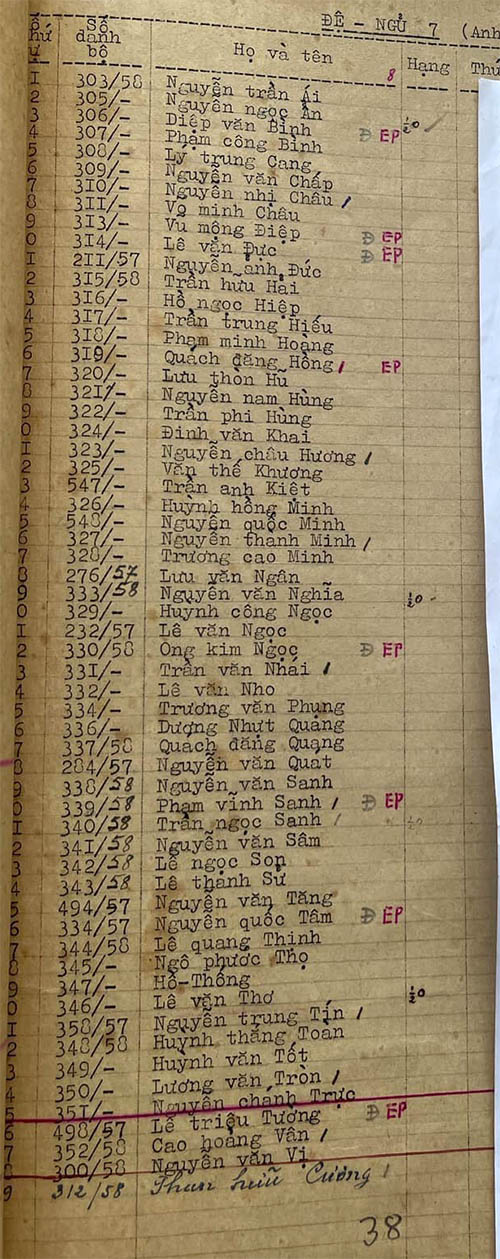 ĐỆ - NGŨ 7 (Anh
Số danh bộ Họ và tên 8 Hạng Thứ
I 303/58 Nguyễn trần Ái
2 305/- Nguyễn ngọc Ẩn
3 306/- Diệp văn Bình ½0
4 307/- Phạm công Bình Đ EP
5 308/- Lý trung Cang
6 309/- Nguyễn văn Chấp
7 3I0/- Nguyễn nhị Châu /
8 3II/- Võ minh Châu
9 3I3/- Vũ mộng Điệp
0 3I4/- Lê văn Đực Đ EP
I 2II/57 Nguyễn anh Đức Đ EP
2 3I5/58 Trần hưu Hải
3 3I6/- Hồ ngọc Hiệp
4 3I7/- Trần trung Hiếu
5 3I8/- Phạm minh Hoàng
6 3I9/- Quách đăng Hồng / EP
7 320/- Lưu thòn Hũ
8 32I/- Nguyễn nam Hùng
9 322/- Trần phi Hùng
0 324/- Đinh văn Khai
I 323/- Nguyễn châu Hương /
2 325/- Văn thế Khương
3 547/- Trần anh Kiệt
4 326/- Huỳnh hồng Minh
5 548/- Nguyễn quốc Minh
6 327/- Nguyễn thanh Minh /
7 328/- Trương cao Minh
8 276/57 Lưu văn Ngân
9 333/58 Nguyễn văn Nghĩa ½0
0 329/- Huỳnh công Ngọc
I 232/57 Lê văn Ngọc
2 330/58 Ong kim Ngọc Đ EP
3 33I/- Trần văn Nhái /
4 332/- Lê văn Nho
5 334/- Trương văn Phụng
6 336/- Dương Nhựt Quảng
7 337/58 Quách đăng Quang
8 284/57 Nguyễn văn Quat
9 338/58 Nguyễn văn Sanh
0 339/58 Phạm vĩnh Sanh / Đ EP
I 340/58 Trần ngọc Sanh / ½0
2 34I/58 Nguyễn văn Sâm
3 342/58 Lê ngọc Sơn
4 343/58 Lê thành Sử
5 494/57 Nguyễn văn Tăng
6 334/57 Nguyễn quốc Tâm Đ EP
7 344/58 Lê quang Thịnh
8 345/- Ngô phước Thọ
9 347/- Hồ-Thông
0 346/- Lê văn Thơ ½0
I 358/57 Nguyễn trung Tín /
2 348/58 Huỳnh thắng Toàn
3 349/- Huỳnh văn Tốt
4 350/- Lương văn Tròn /
5 35I/- Nguyễn chánh Trực
6 498/57 Lê triệu Tường Đ EP
7 352/58 Cao hoàng Vân /
8 300/58 Nguyễn văn Vị
9 312/58 Phan hữu Cường /
38